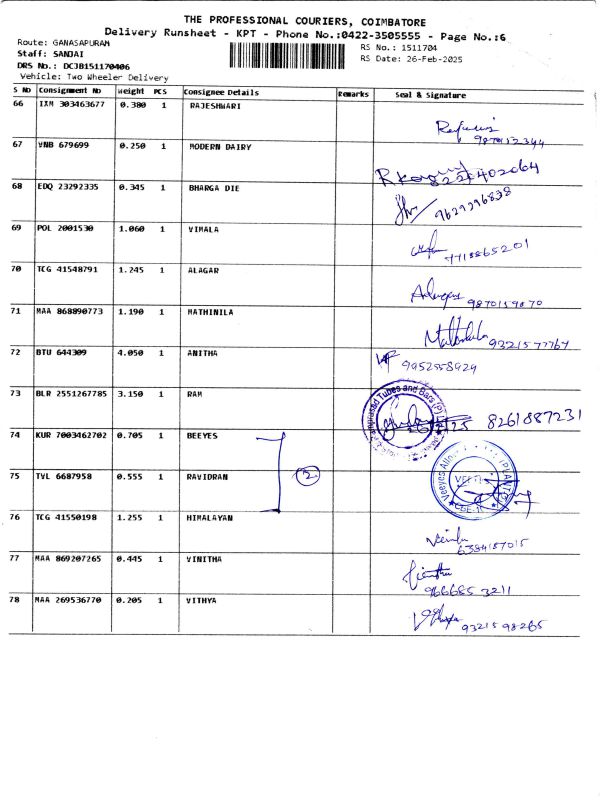 THE PROFESSIONAL COURIERS, COIMBATORE
Delivery Runsheet - KPT - Phone No.:0422-3505555 - Page No.:6
Route: GANASAPURAM
RS No.: 1511704
Staff: SANJAI
RS Date: 26-Feb-2025
DRS No.: DCJB151170406
Vehicle: Two Wheeler Delivery
S No Consignment No Weight PCS Consignee Details Remarks Seal & Signature
66 IXM 303463677 0.380 1 RAJESHWARI
67 VNB 679699 0.250 1 MODERN DAIRY
68 EDQ 23292335 0.345 1 BHARGA DIE 9629296838
69 POL 2001530 1.060 1 VIMALA 7718865201
70 TCG 41548791 1.245 1 ALAGAR 9870159870
71 MAA 868890773 1.190 1 MATHINILA
72 BTU 644309 4.050 1 ANITHA 9952558924
73 BLR 2551267785 3.150 1 RAM Tubes and Bars (P) 8261887231
74 KUR 7003462702 0.705 1 BEEYES
75 TVL 6687958 0.555 1 RAVIDRAN 2 Veeyes
76 TCG 41550198 1.255 1 HIMALAYAN 6384157015
77 MAA 869207265 0.445 1 VINITHA 9666853211
78 MAA 269536770 0.205 1 VITHYA 9321598265